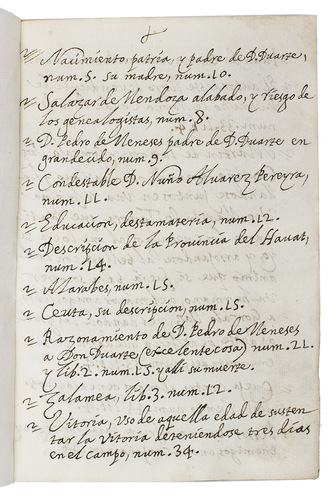 Nacimiento, patria, y padre de D. Duarte,
num. 5. su madre, num. 10.
Salazar de Mendoza alabado, y riesgo de
los genealogistas, num. 8.
D. Pedro de Meneses padre de D. Duarte en
grandecido, num. 9.
Condestable D. Nuño Alvarez Pereyra,
num. 11.
Educacion, destamateria, num. 12.
Descripcion de la Provincia del Havat,
num. 14.
Alarabes, num. 15.
Ceuta, su descripcion, num. 15.
Razonamiento de D. Pedro de Meneses
a Don Duarte (excelente cosa) num. 21.
y lib. 2. num. 15. y alli su muerte.
Zalamea, lib. 3. num. 12.
Vitoria, uso de aquella edad de susten-
tar la vitoria deteniendose tres dias
en el campo, num. 34.